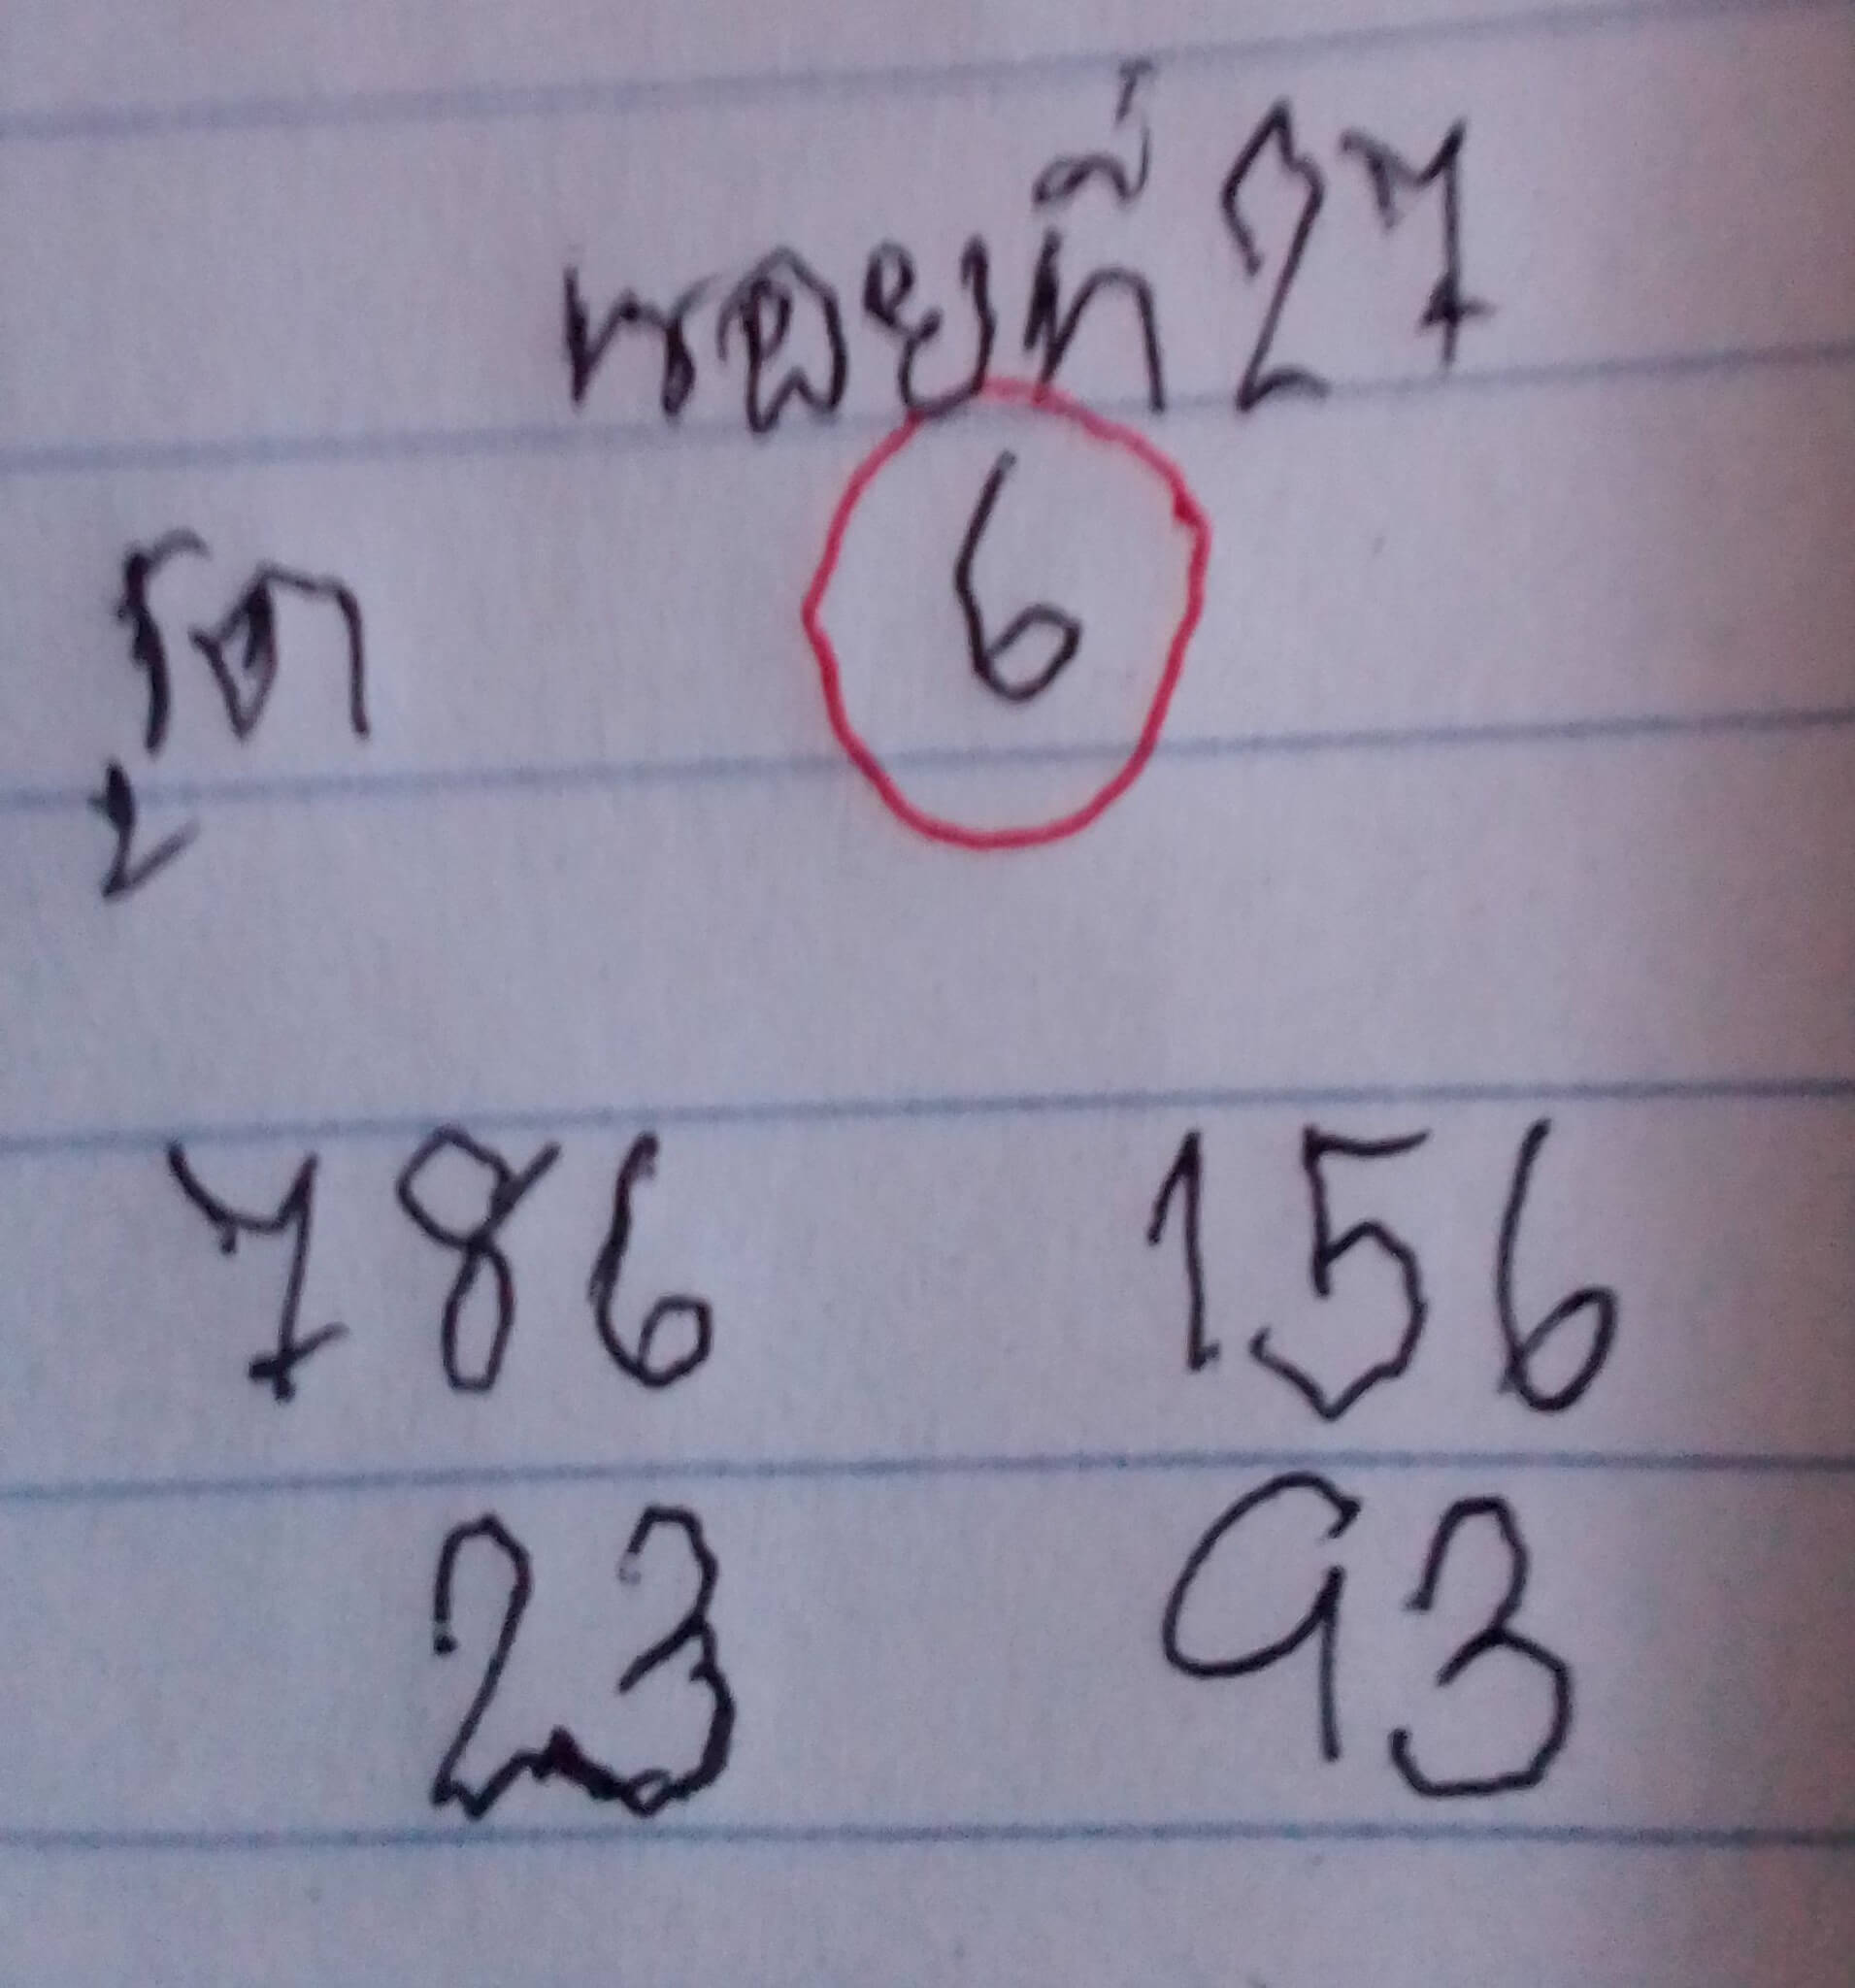 หอยที่ 27
6
786 156
23 93